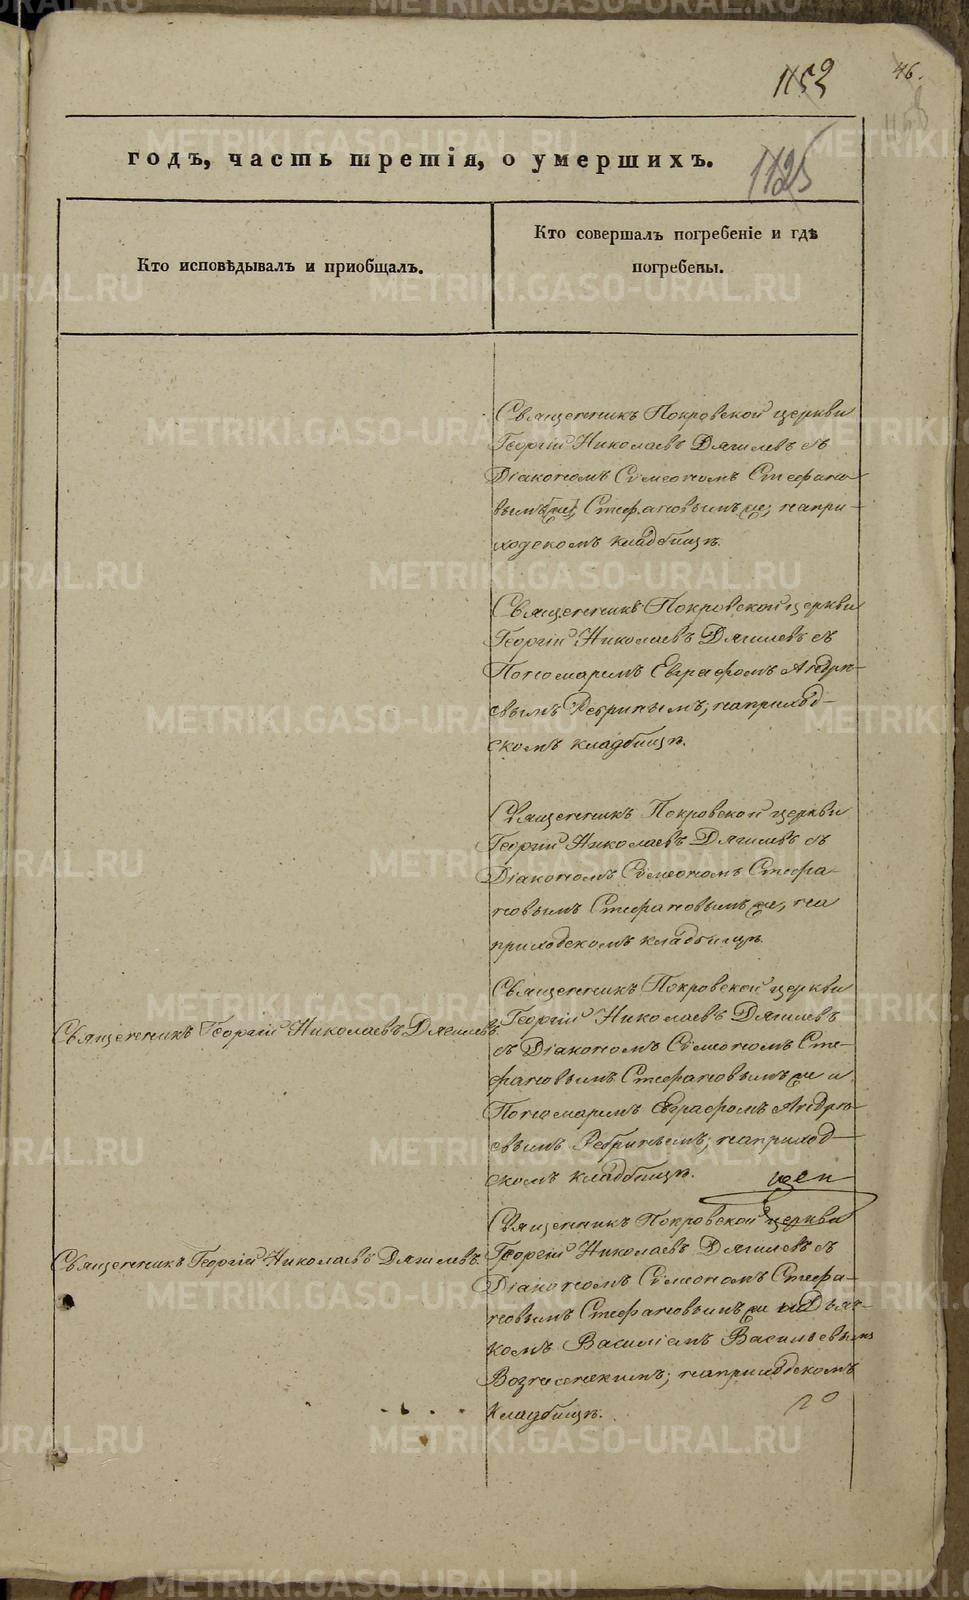 46.
1152
1125
годъ, часть третія, о умершихъ.
Кто исповѣдывалъ и пріобщалъ.
Кто совершалъ погребеніе и гдѣ
погребены.
Священникъ Покровской церкви
Георгій Николаевъ Дягилевъ съ
Діакономъ Сѵмеономъ Стефано-
вымъ Стефановымъ же, на при-
ходскомъ кладбищѣ.
Священникъ Покровской церкви
Георгій Николаевъ Дягилевъ съ
Пономаремъ Евграфомъ Андре-
евымъ Ребринымъ; на приход-
скомъ кладбищѣ.
Священникъ Покровской церкви
Георгій Николаевъ Дягилевъ съ
Діакономъ Сѵмеономъ Стефа-
новымъ Стефановымъ же, на
приходскомъ кладбищѣ.
Священникъ Георгій Николаевъ Дягилевъ.
Священникъ Покровской церкви
Георгій Николаевъ Дягилевъ
съ Діакономъ Сѵмеономъ Сте-
фановымъ Стефановымъ же и
Пономаремъ Евграфомъ Андре-
евымъ Ребринымъ; на приход-
скомъ кладбищѣ.
Священникъ Георгій Николаевъ Дягилевъ.
Священникъ Покровской церкви
Георгій Николаевъ Дягилевъ съ
Діакономъ Сѵмеономъ Стефа-
новымъ Стефановымъ же и Дьяч-
комъ Василіемъ Васильевымъ
Вознесенскимъ; на приходскомъ
кладбищѣ.
METRIKI.GASO-URAL.RU